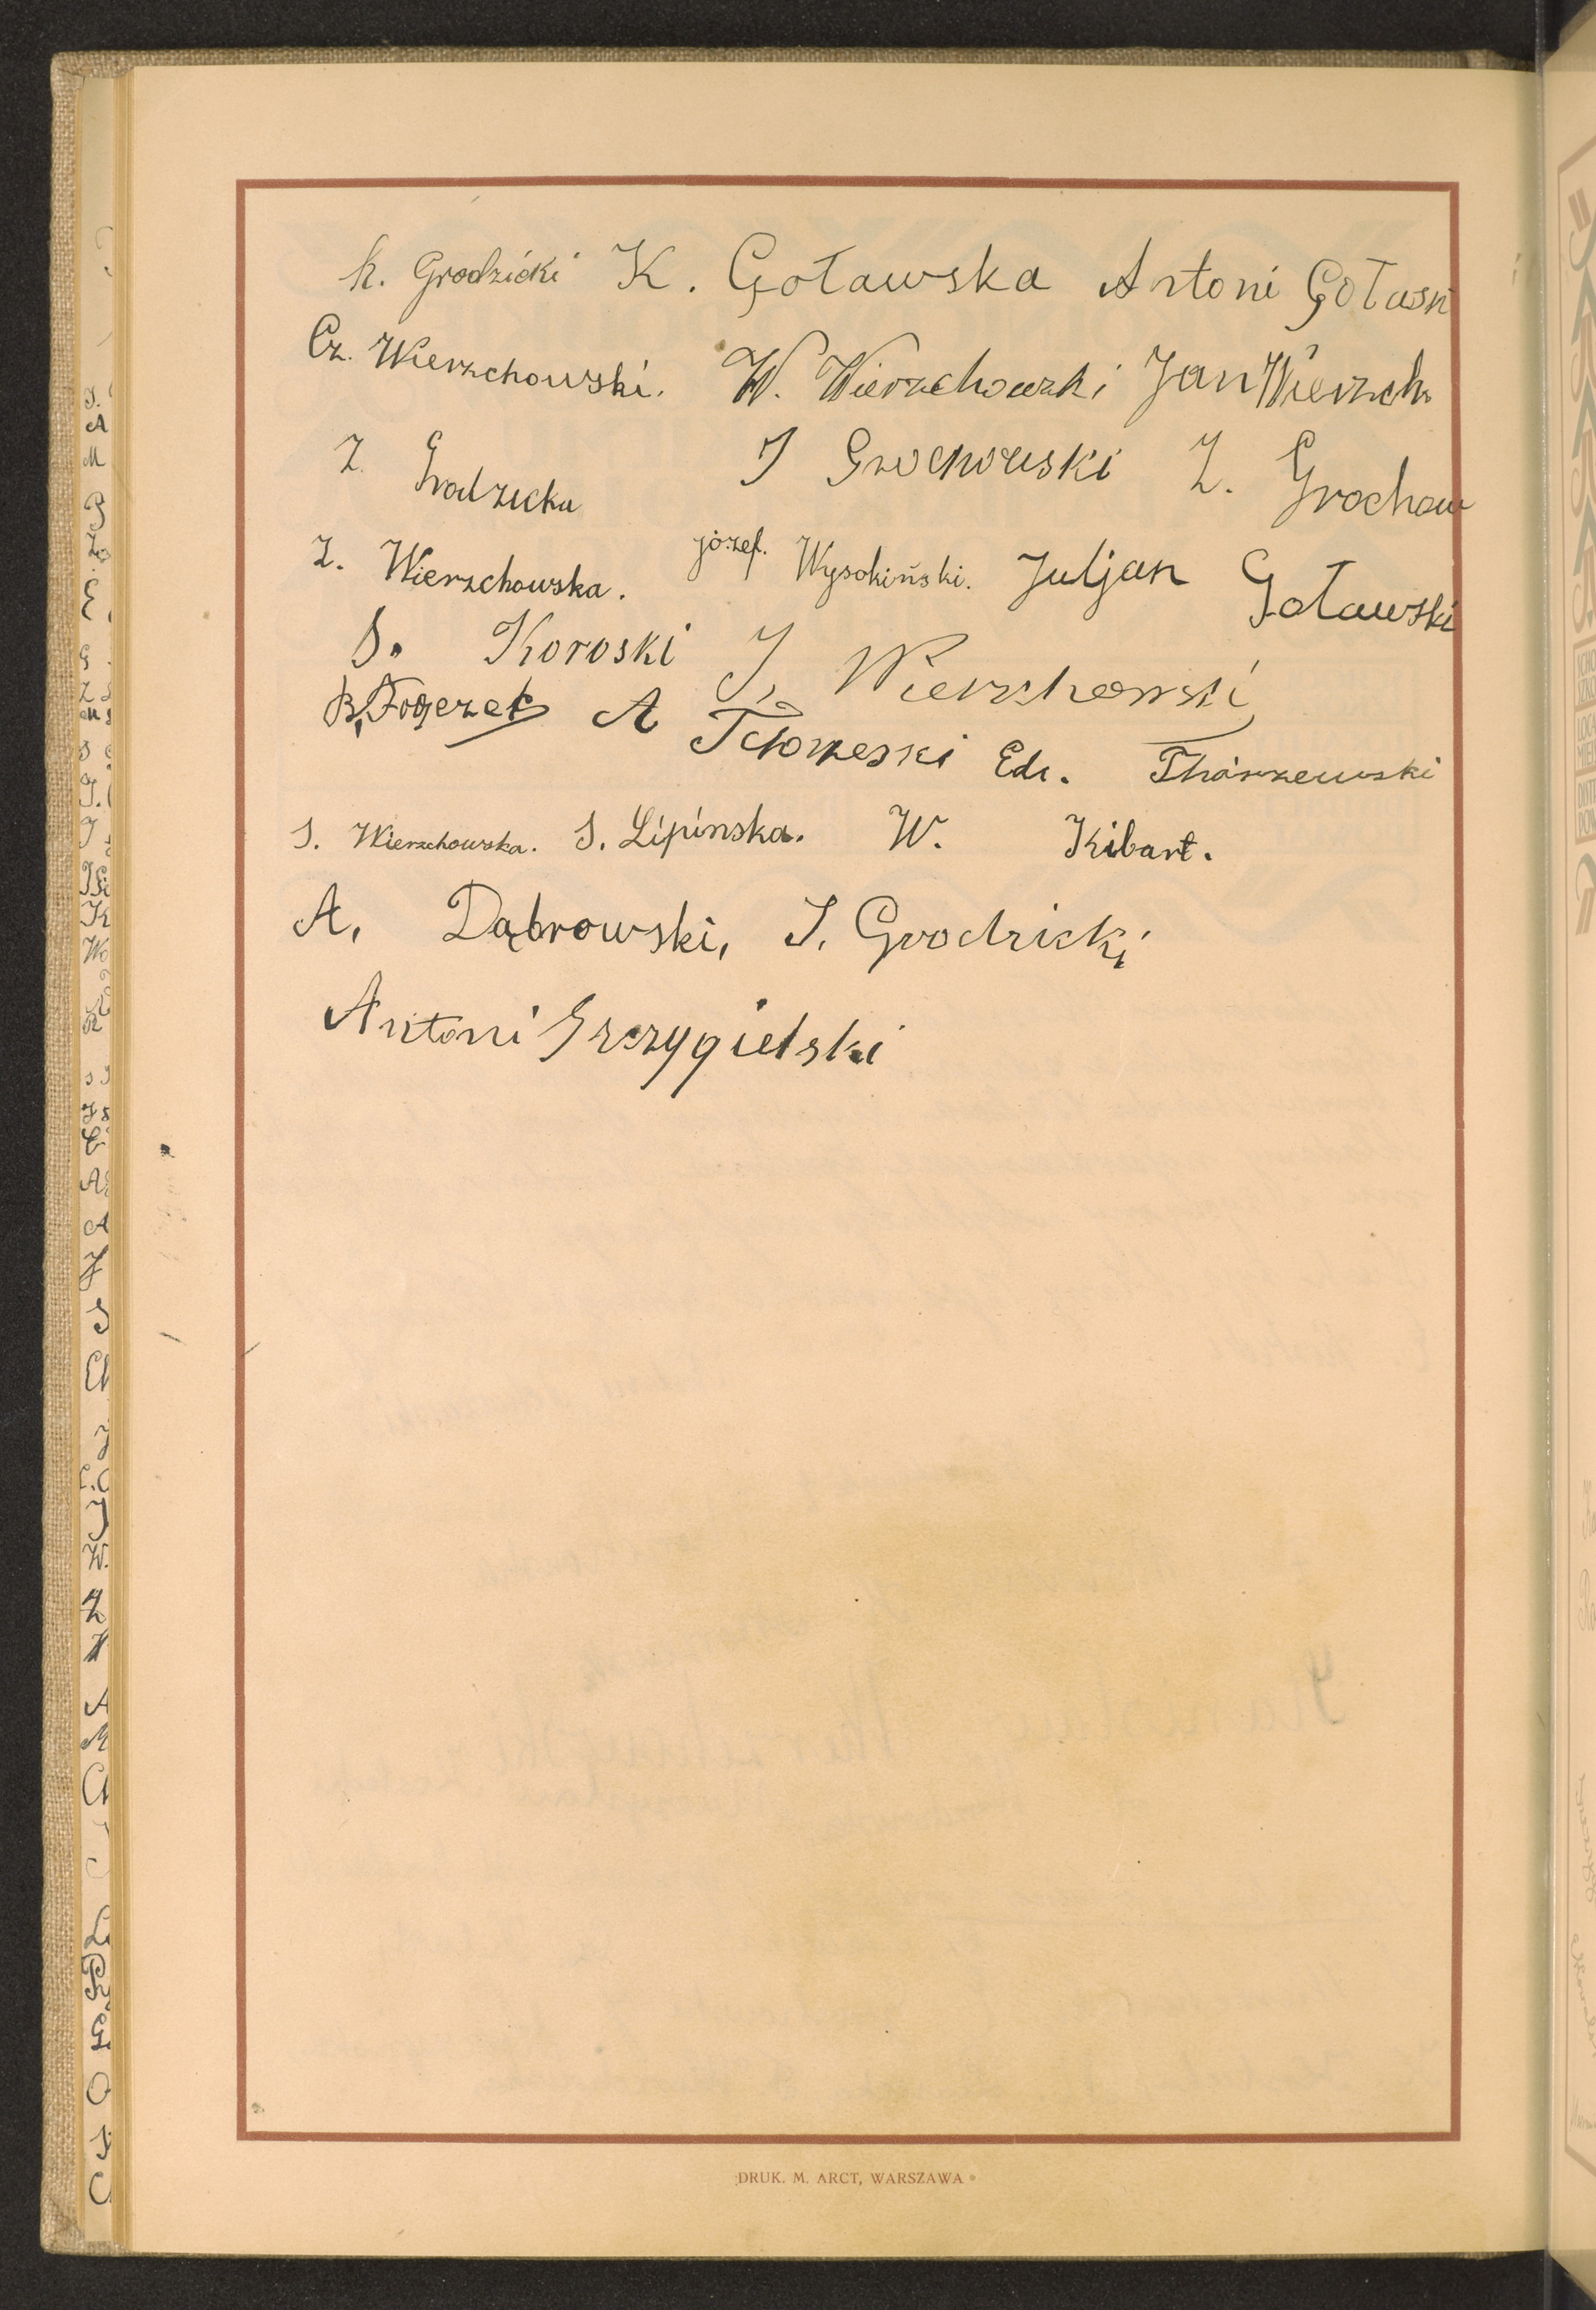 K. Grodzicki K. Goławska Antoni Goławsk
Cz. Wierzchowski. W. Wierzchowski Jan Wierzch
Z. Grodzicka J Grochowski Z. Grochow
Z. Wierzchowska. józef. Wysokiński. Juljan Goławski
S. Koroski J. Wierzchowski
A Edr.
S. Wierzchowska. S. Lipińska. W. Kibart.
A. Dąbrowski, J. Grodzicki
Antoni Grzygielski
DRUK. M. ARCT, WARSZAWA